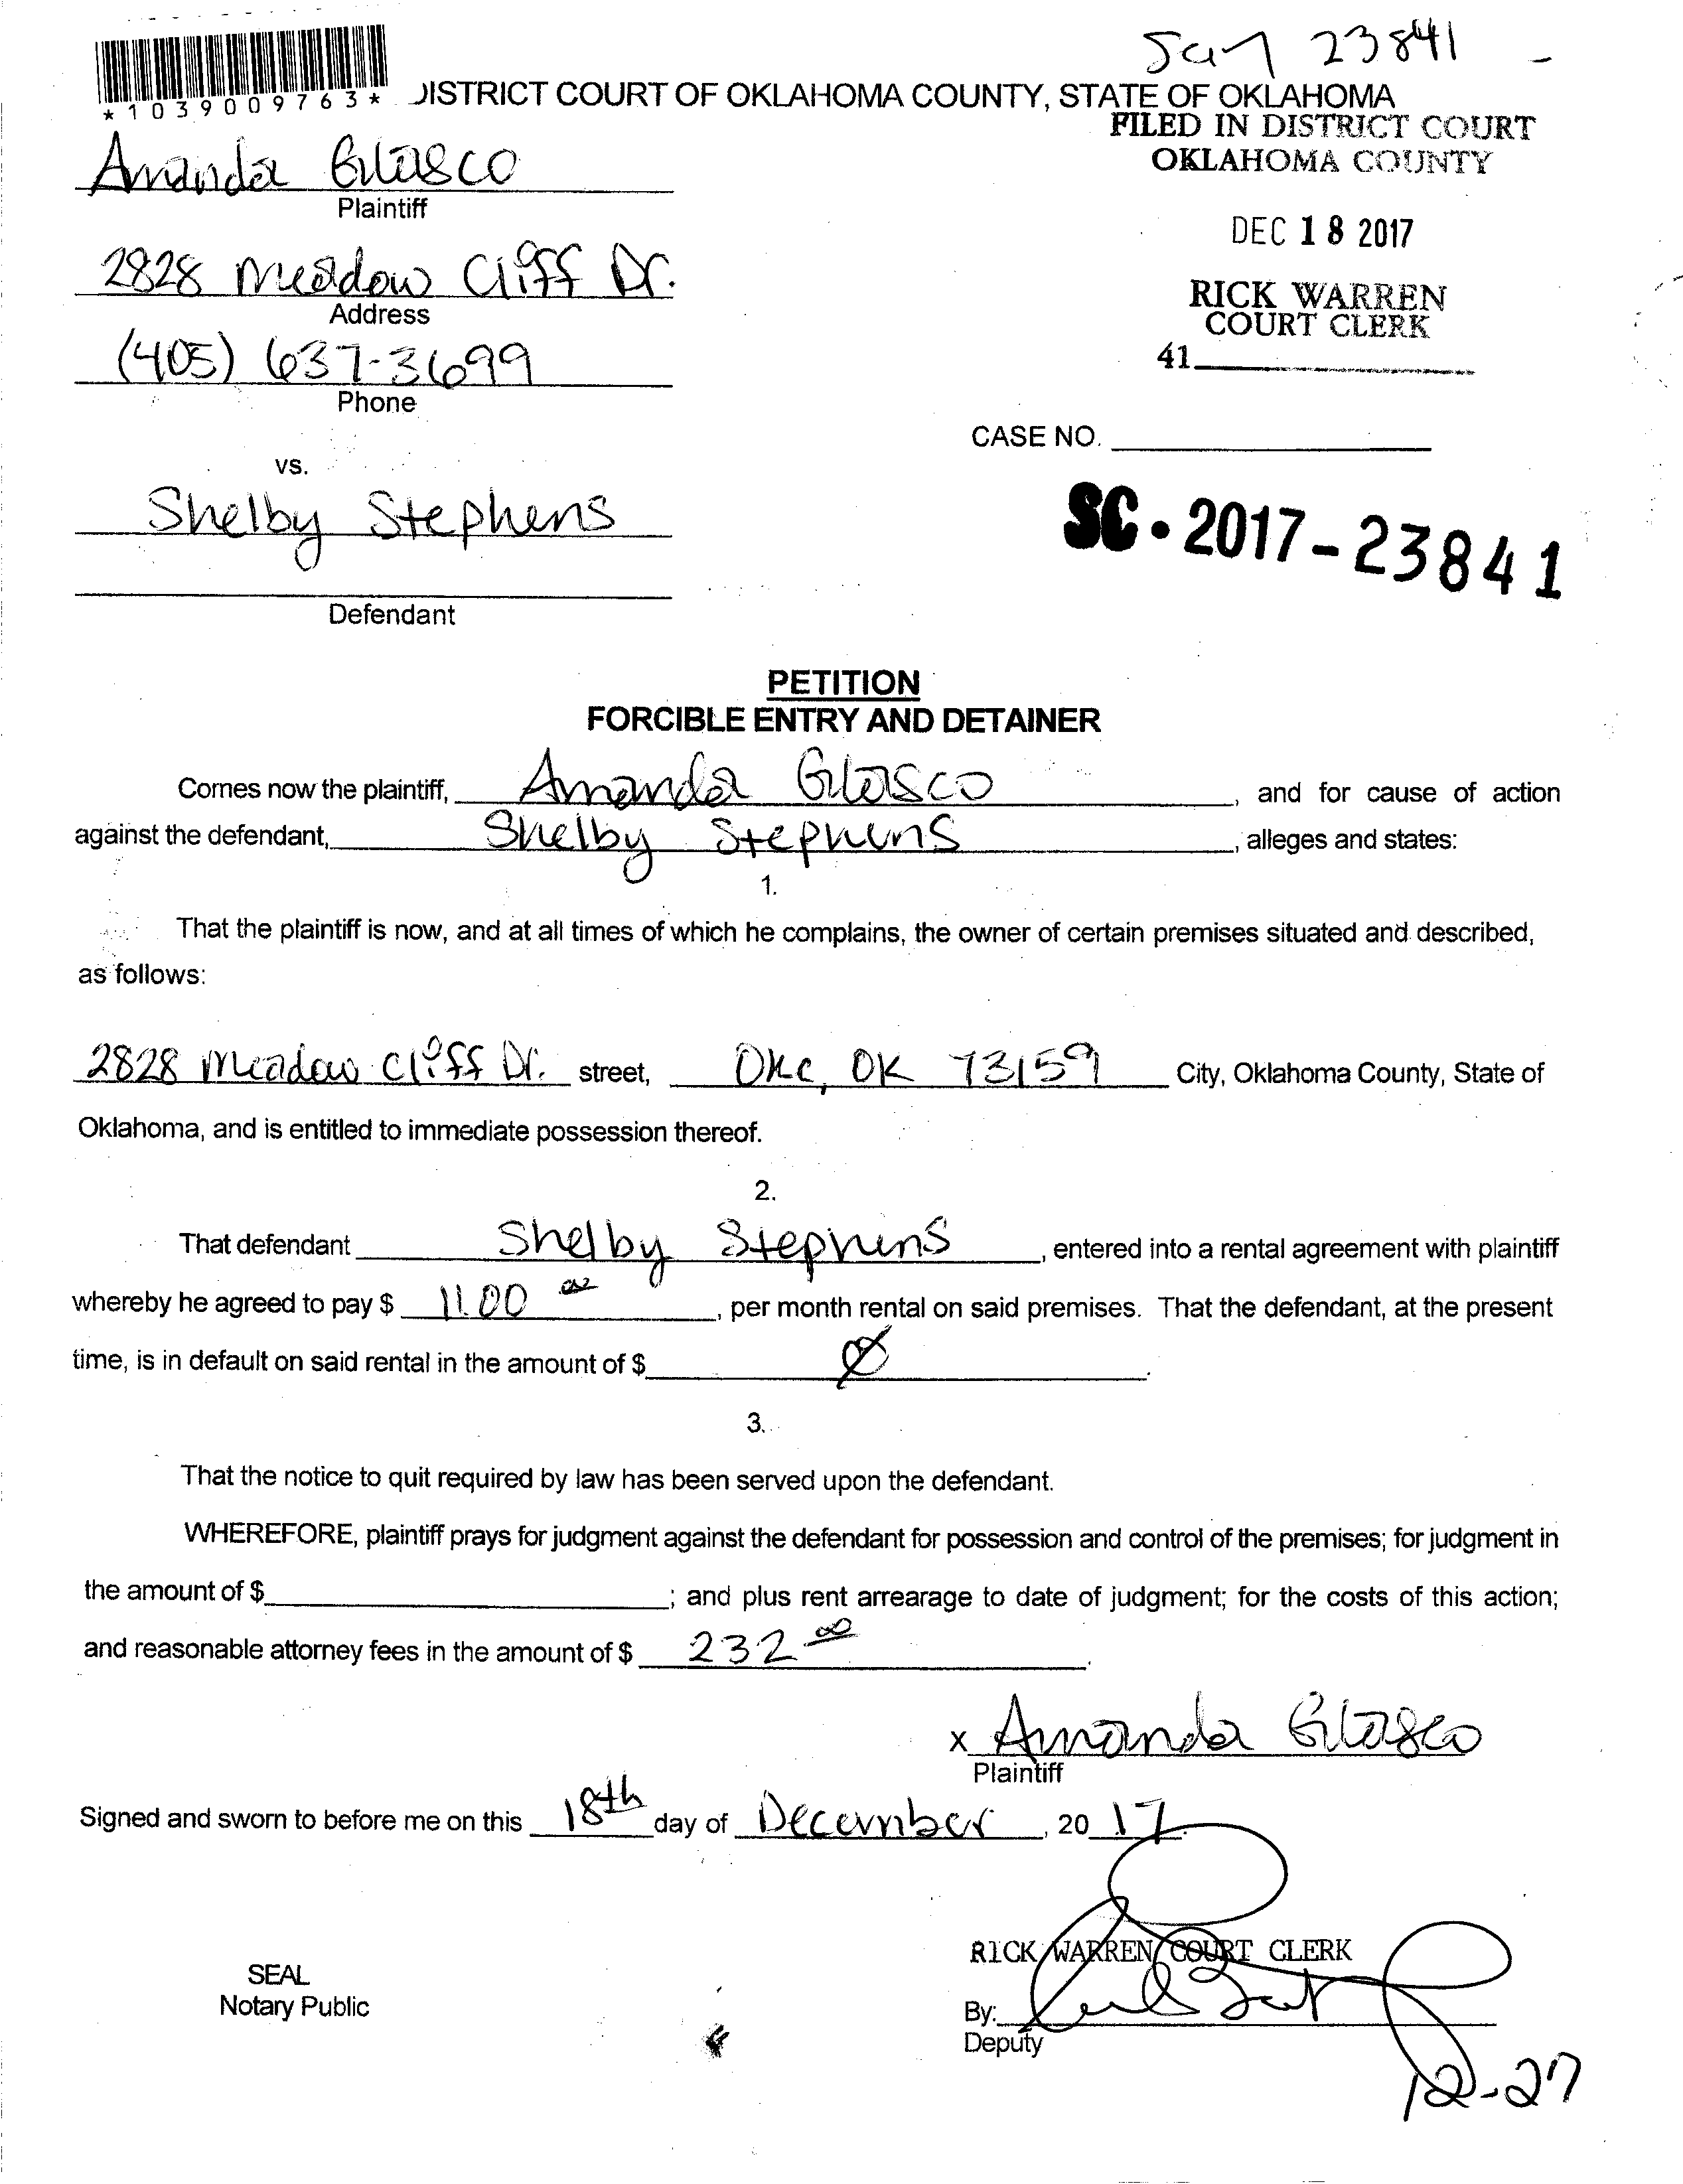 23841
*1039009763*
DISTRICT COURT OF OKLAHOMA COUNTY, STATE OF OKLAHOMA
FILED IN DISTRICT COURT
OKLAHOMA COUNTY
Amanda Glasco
Plaintiff
DEC 18 2017
2828 Meadow Cliff Dr.
Address
RICK WARREN
COURT CLERK
(405) 637-3699
41
Phone
CASE NO.
vs.
Shelby Stephens
SC-2017-23841
Defendant
PETITION
FORCIBLE ENTRY AND DETAINER
Comes now the plaintiff, Amanda Glasco, and for cause of action
against the defendant, Shelby Stephens, alleges and states:
1.
That the plaintiff is now, and at all times of which he complains, the owner of certain premises situated and described,
as follows:
2828 Meadow Cliff Dr. street, OKC, OK 73159 City, Oklahoma County, State of
Oklahoma, and is entitled to immediate possession thereof.
2.
That defendant Shelby Stephens, entered into a rental agreement with plaintiff
whereby he agreed to pay $ 1100 00, per month rental on said premises. That the defendant, at the present
time, is in default on said rental in the amount of $ Ø.
3.
That the notice to quit required by law has been served upon the defendant.
WHEREFORE, plaintiff prays for judgment against the defendant for possession and control of the premises; for judgment in
the amount of $ ; and plus rent arrearage to date of judgment; for the costs of this action;
and reasonable attorney fees in the amount of $ 232 00.
x Amanda Glasco
Plaintiff
Signed and sworn to before me on this 18th day of December, 20 17.
RICK WARREN COURT CLERK
SEAL
Notary Public
By:
Deputy
12-27